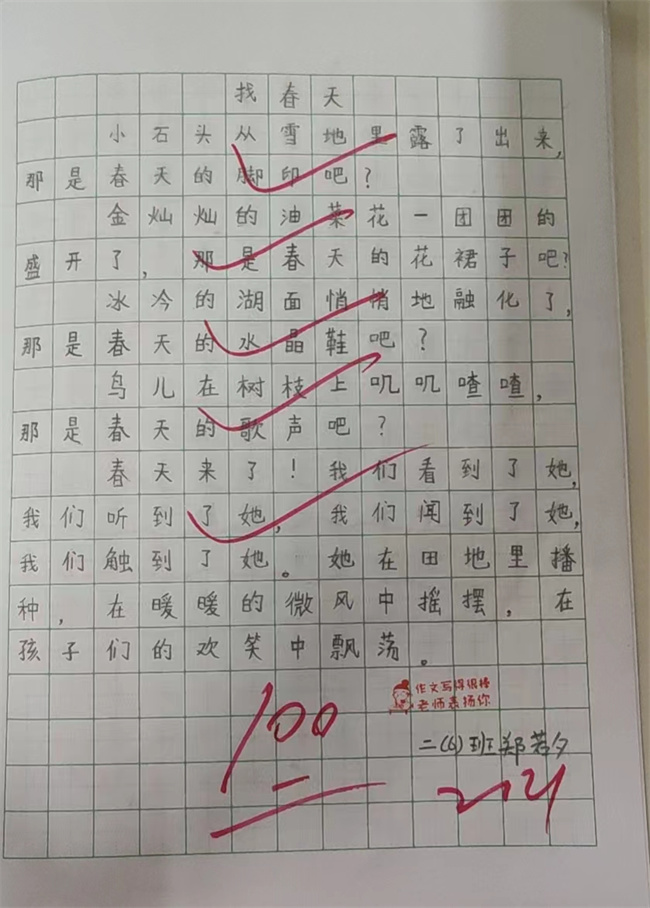 找春天
小石头从雪地里露了出来,
那是春天的脚印吧?
金灿灿的油菜花一团团的
盛开了,那是春天的花裙子吧?
冰冷的湖面悄悄地融化了,
那是春天的水晶鞋吧?
鸟儿在树枝上叽叽喳喳,
那是春天的歌声吧?
春天来了!我们看到了她,
我们听到了她,我们闻到了她,
我们触到了她。她在田地里播
种,在暖暖的微风中摇摆,在
孩子们的欢笑中飘荡。
作文写得很棒
老师表扬你
100
二(6)班郑若夕